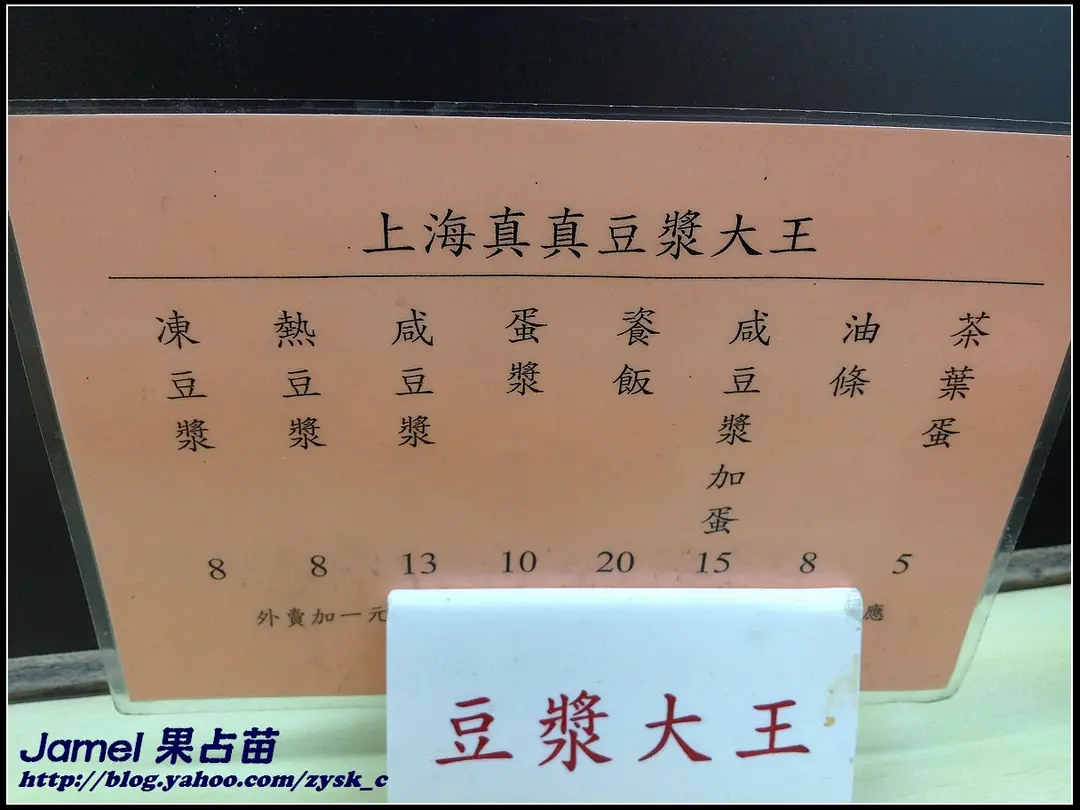 上海真真豆漿大王
凍豆漿
熱豆漿
咸豆漿
蛋漿
粢飯
咸豆漿加蛋
油條
茶葉蛋
8 8 13 10 20 15 8 5
外賣加一元
應
豆漿大王
Jamel 果占苗
http://blog.yahoo.com/zysk_c